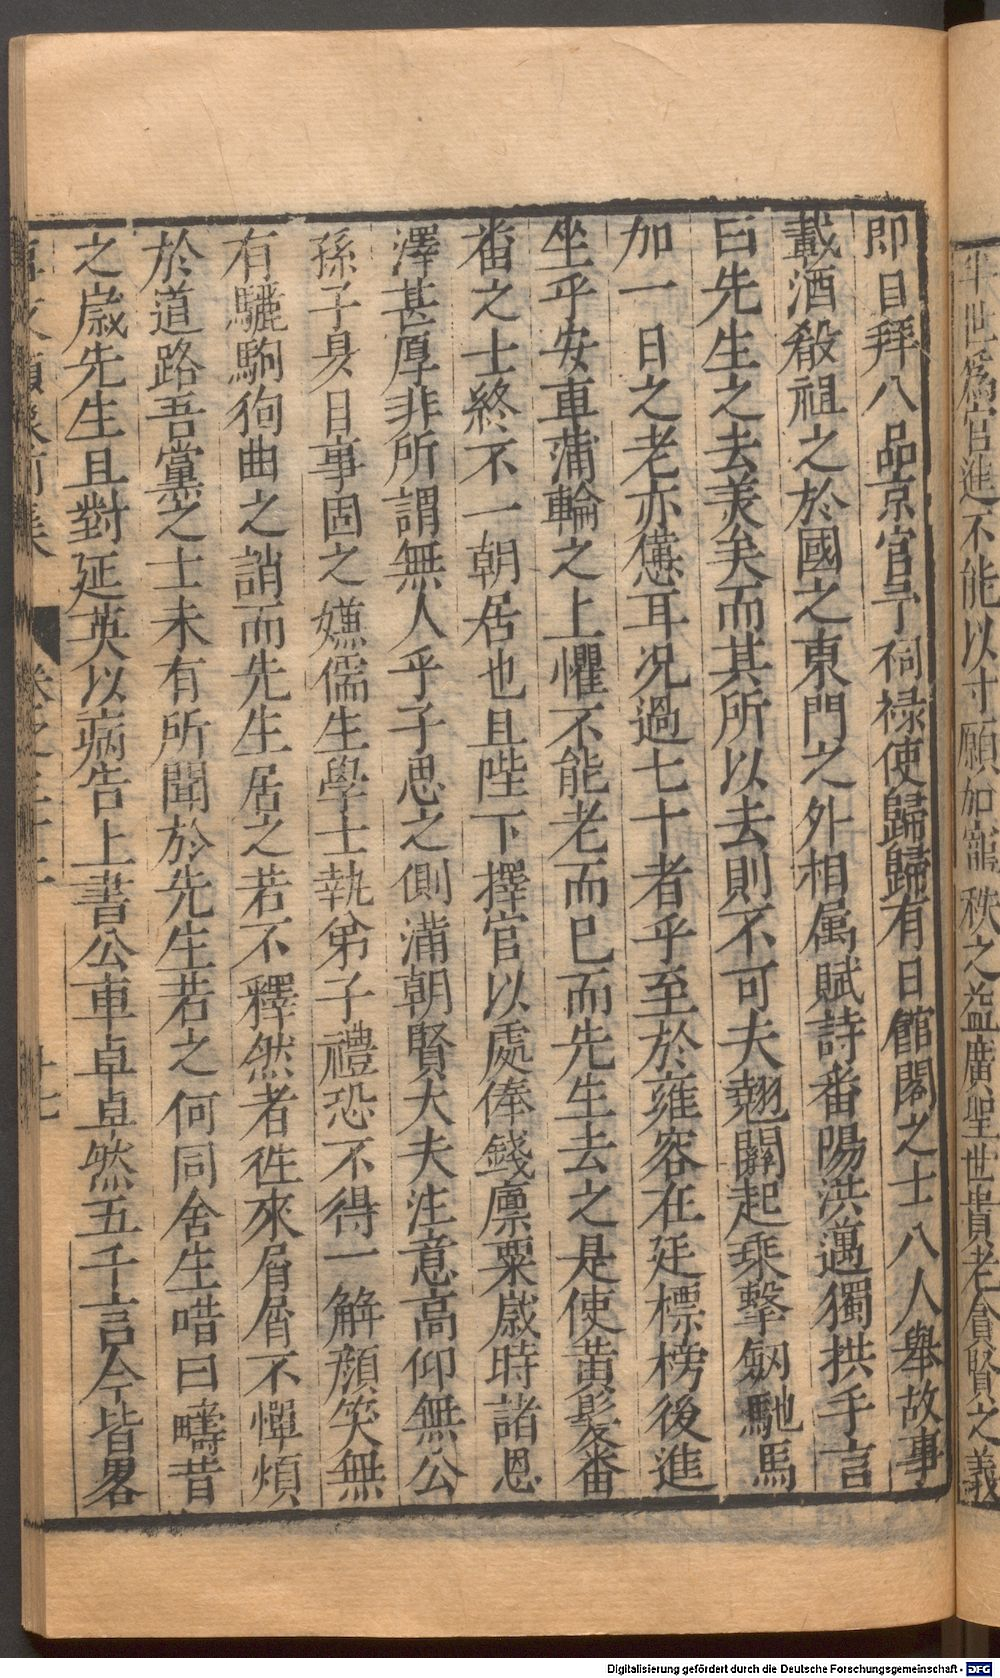 半世爲官進不能以寸願加寵秩之益廣聖世貴老貪賢之義
即日拜八品京官予祠祿使歸歸有日館閣之士八人舉故事
載酒殽祖之於國之東門之外相属賦詩番陽洪邁獨拱手言
曰先生之去美矣而其所以去則不可夫翹關起乘擊劔馳馬
加一日之老亦憊耳况過七十者乎至於雍容在廷標榜後進
坐乎安車蒲輪之上懼不能老而已而先生去之是使黃髮番
番之士終不一朝居也且陛下擇官以處俸錢廪粟歲時諸恩
澤甚厚非所謂無人乎子思之側滿朝賢大夫注意高仰無公
孫子臭目事固之嫌儒生學士執弟子禮恐不得一解顔笑無
有驪駒狗曲之誚而先生居之若不釋然者徃來屑屑不憚煩
於道路吾黨之士未有所聞於先生若之何同舍生唶曰疇昔
之歲先生且對延英以病告上書公車卓卓然五千言今皆畧
卷之二十二
十七
Digitalisierung gefördert durch die Deutsche Forschungsgemeinschaft - DFG